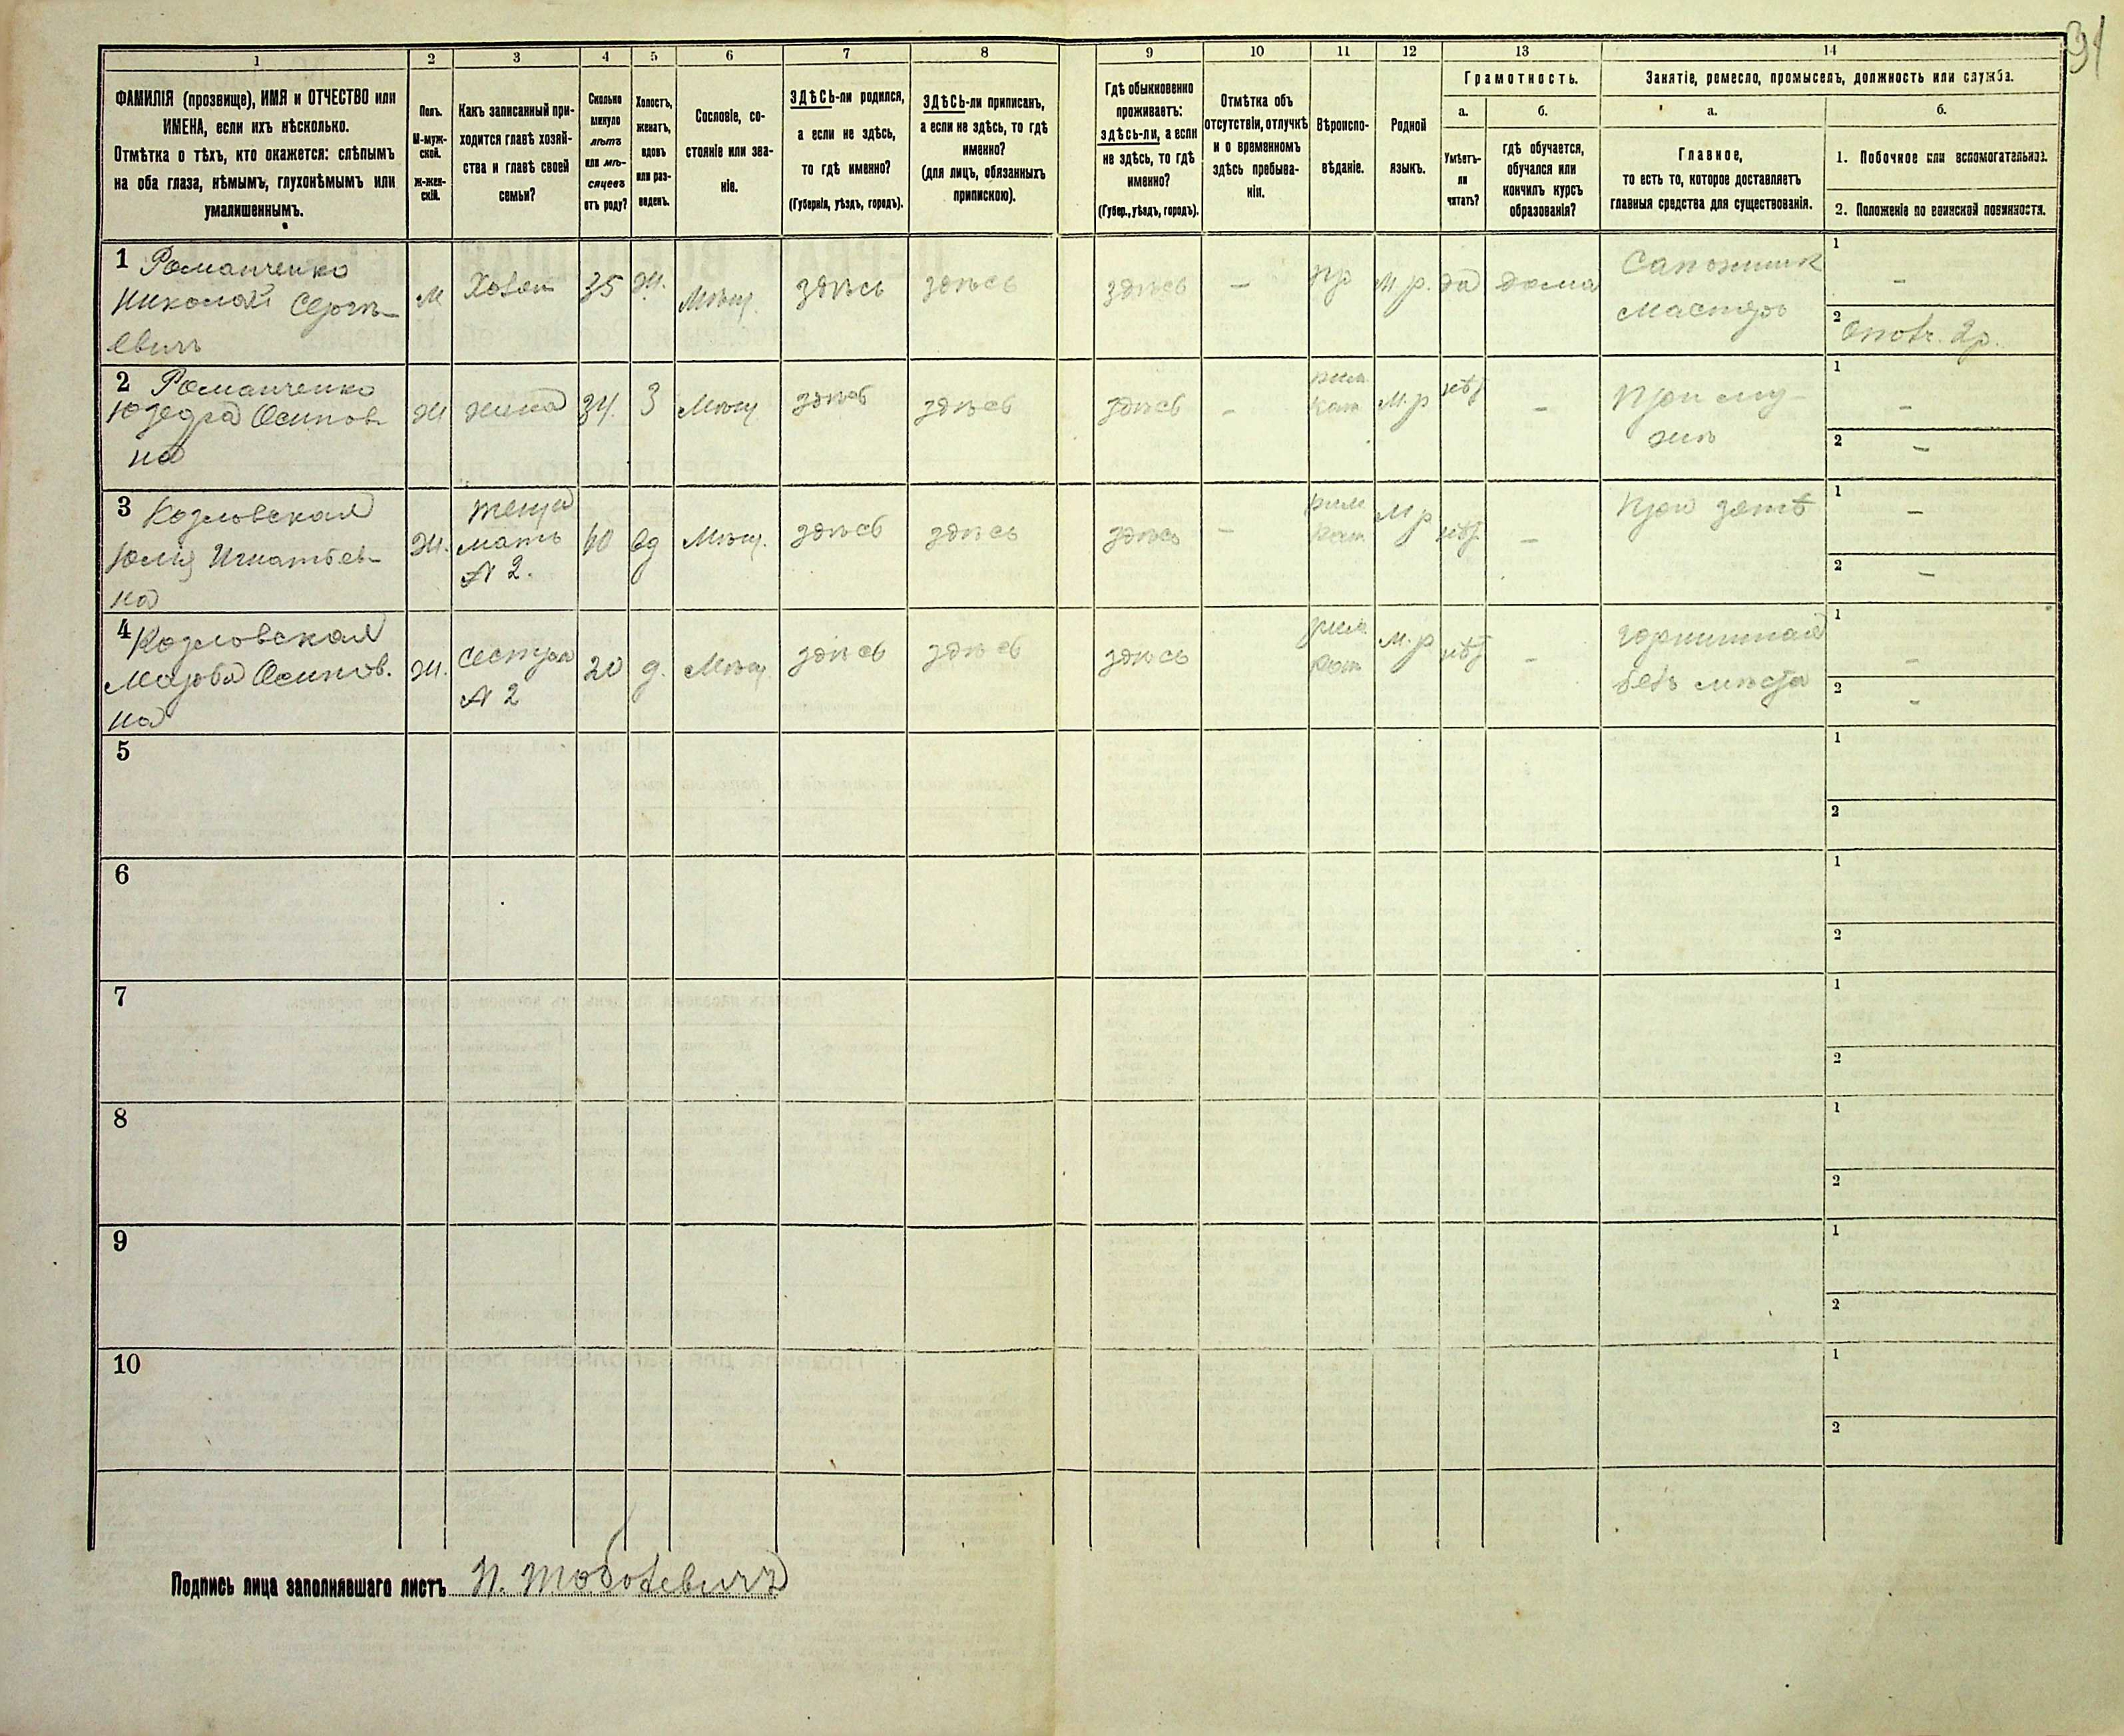 91
1 2 3 4 5 6 7 8 9 10 11 12 13 14
ФАМИЛІЯ (прозвище), ИМЯ и ОТЧЕСТВО или
ИМЕНА, если ихъ нѣсколько.
Отмѣтка о тѣхъ, кто окажется: слѣпымъ
на оба глаза, нѣмымъ, глухонѣмымъ или
умалишеннымъ.
Полъ.
М-муж-
ской.
Ж-жен-
скій.
Какъ записанный при-
ходится главѣ хозяй-
ства и главѣ своей
семьи?
Сколько
минуло
лѣтъ
или мѣ-
сяцевъ
отъ роду?
Холостъ,
женатъ,
вдовъ
или раз-
веденъ.
Сословіе, со-
стояніе или зва-
ніе.
ЗДѢСЬ-ли родился,
а если не здѣсь,
то гдѣ именно?
(Губернія, уѣздъ, городъ).
ЗДѢСЬ-ли приписанъ,
а если не здѣсь, то гдѣ
именно?
(для лицъ, обязанныхъ
припискою).
Гдѣ обыкновенно
проживаетъ:
здѣсь-ли, а если
не здѣсь, то гдѣ
именно?
(Губер., уѣздъ, городъ).
Отмѣтка объ
отсутствіи, отлучкѣ
и о временномъ
здѣсь пребыва-
ніи.
Вѣроиспо-
вѣданіе.
Родной
языкъ.
Грамотность.
а.
Умѣетъ-
ли
читать?
б.
гдѣ обучается,
обучался или
кончилъ курсъ
образованія?
Занятіе, ремесло, промыселъ, должность или служба.
а.
Главное,
то есть то, которое доставляетъ
главныя средства для существованія.
б.
1. Побочное или вспомогательное.
2. Положеніе по воинской повинности.
1 Романченко
Николай Сергѣ-
евичъ
М
Хозяин
35
Ж.
Мѣщ.
здѣсь
здѣсь
здѣсь
–
пр
М.р.
да
дома
Сапожник
мастеръ
1 –
2 2р.
2 Романченко
Юзефа Осипов
на
Ж
жена
34
З
Мѣщ
здѣсь
здѣсь
здѣсь
–
рим.
кат
М.р
нѣт
–
При му-
жѣ
1 –
2 –
3 Козловская
Юлия Игнатьев-
на
Ж.
теща
мать
№ 2.
60
вд
Мѣщ.
здѣсь
здѣсь
здѣсь
–
рим
кат
М р
нѣт.
–
При зятѣ
1 –
2 –
4 Козловская
Марья Осипов.
на
Ж.
Сестра
№ 2
20
д.
Мѣщ
здѣсь
здѣсь
здѣсь
рим
кат
М.р
нѣт
–
Горничная
безъ мѣста
1 –
2 –
5
1
2
6
1
2
7
1
2
8
1
2
9
1
2
10
1
2
Подпись лица заполнявшаго листъ